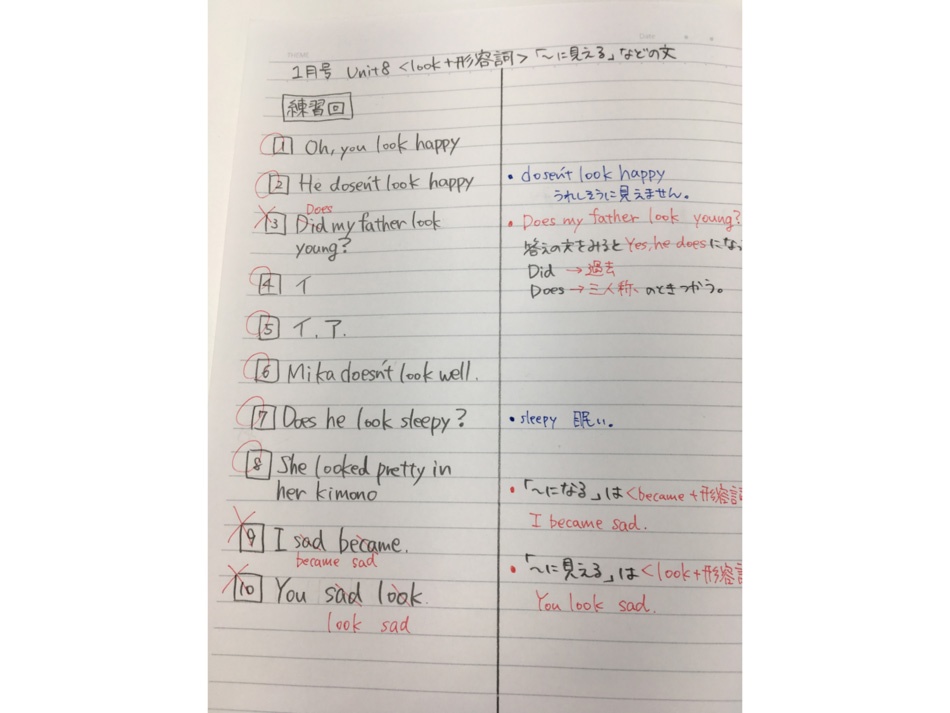 1月号 Unit8 <look+形容詞>「〜に見える」などの文
練習回
1 Oh, you look happy
2 He dosen't look happy
• dosen't look happy
うれしそうに見えません。
Does
3 Did my father look
young?
• Does my father look young?
答えの文をみると Yes, he does にな
Did → 過去
Does → 三人称 のときつかう。
4 イ
5 イ, ア.
6 Mika doesn't look well.
7 Does he look sleepy?
• sleepy 眠い。
8 She looked pretty in
her kimono
• 「〜になる」は<became+形容詞
I became sad.
9 I sad became.
became sad
• 「〜に見える」は<look+形容詞
You look sad.
10 You sad look.
look sad